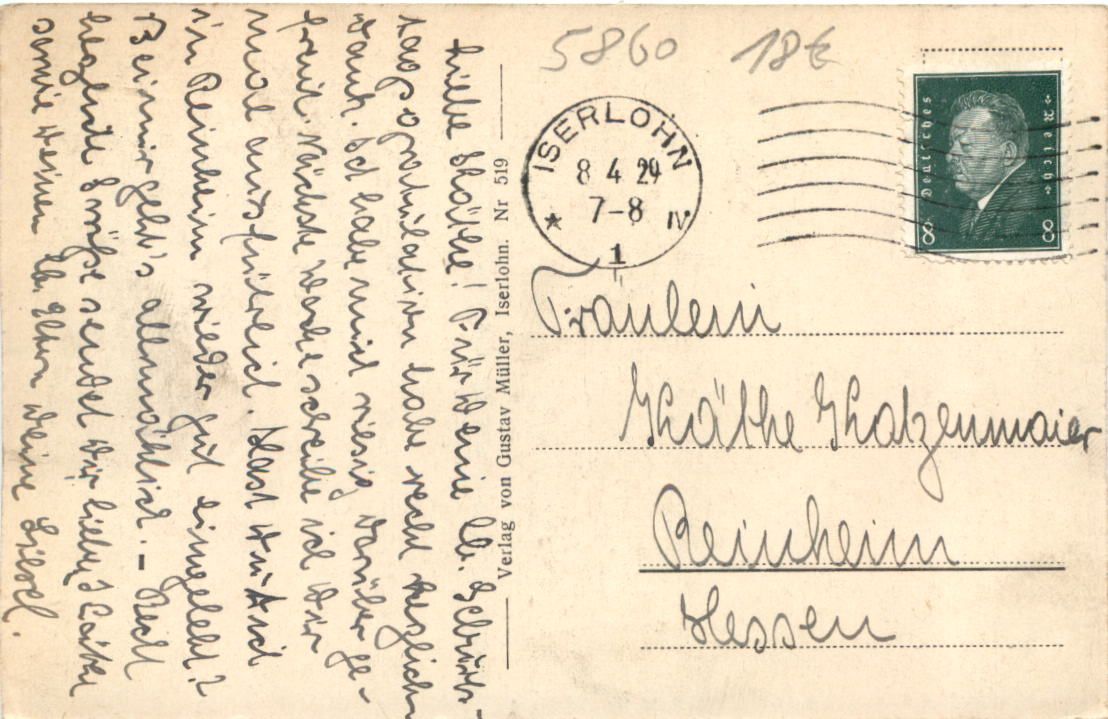 Liebe Käthe! Für Deine lb. Geburts-
tagsgratulation habe recht herzlich
Dank. Ich habe mich riesig darüber ge-
freut. Nächste Woche schreibe ich Dir
mal ausführlich. Hast Du Dich
in Reinheim wieder gut eingelebt?
Bei mir geht's allmählich. - Recht
herzliche Grüße sendet Dir liebes Käthe
sowie Deinen lb. Eltern Deine Liesel.
Verlag von Gustav Müller, Iserlohn. Nr 519
5860 18€
ISERLOHN
8 4 29
7-8 IV
★ 1
Deutsches Reich
8 8
Fräulein
Käthe Katzenmaier
Reinheim
Hessen